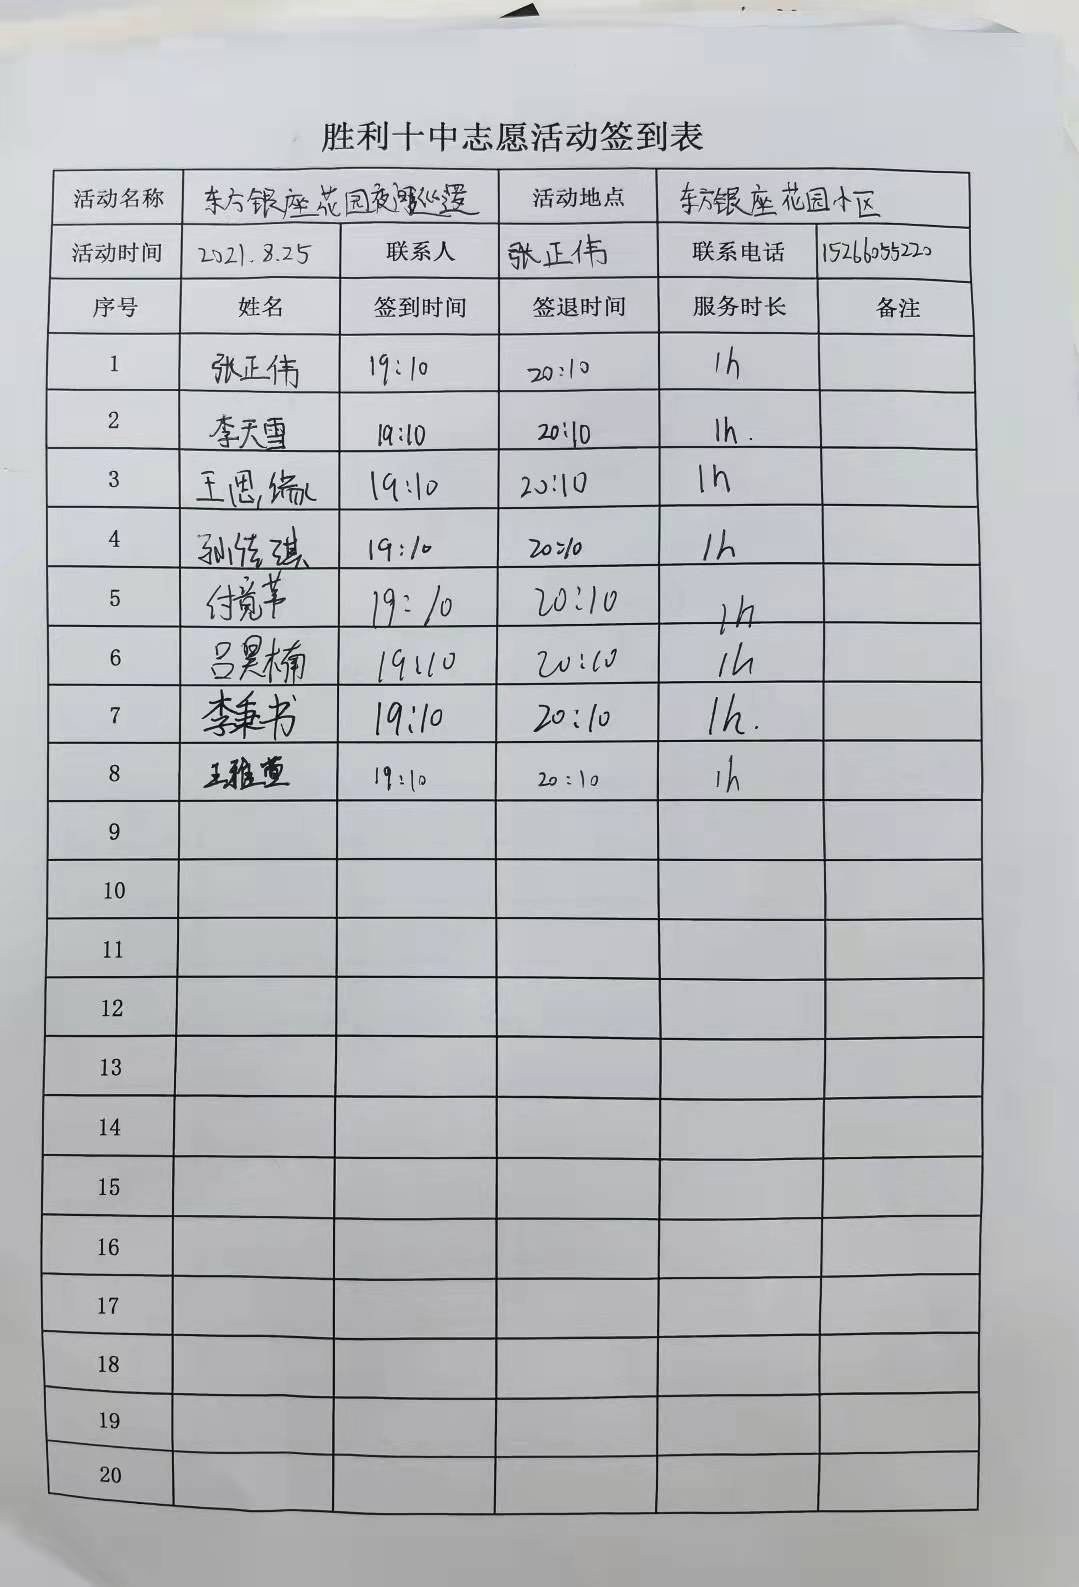 胜利十中志愿活动签到表
活动名称 东方银座花园夜间巡逻 活动地点 东方银座花园小区
活动时间 2021.8.25 联系人 张正伟 联系电话 15266055220
序号 姓名 签到时间 签退时间 服务时长 备注
1 张正伟 19:10 20:10 1h
2 李天雪 19:10 20:10 1h.
3 王恩瑞 19:10 20:10 1h
4 孙佳琪 19:10 20:10 1h
5 付竟苇 19:10 20:10 1h
6 吕昊楠 19:10 20:10 1h
7 李秉书 19:10 20:10 1h.
8 王雅萱 19:10 20:10 1h
9
10
11
12
13
14
15
16
17
18
19
20